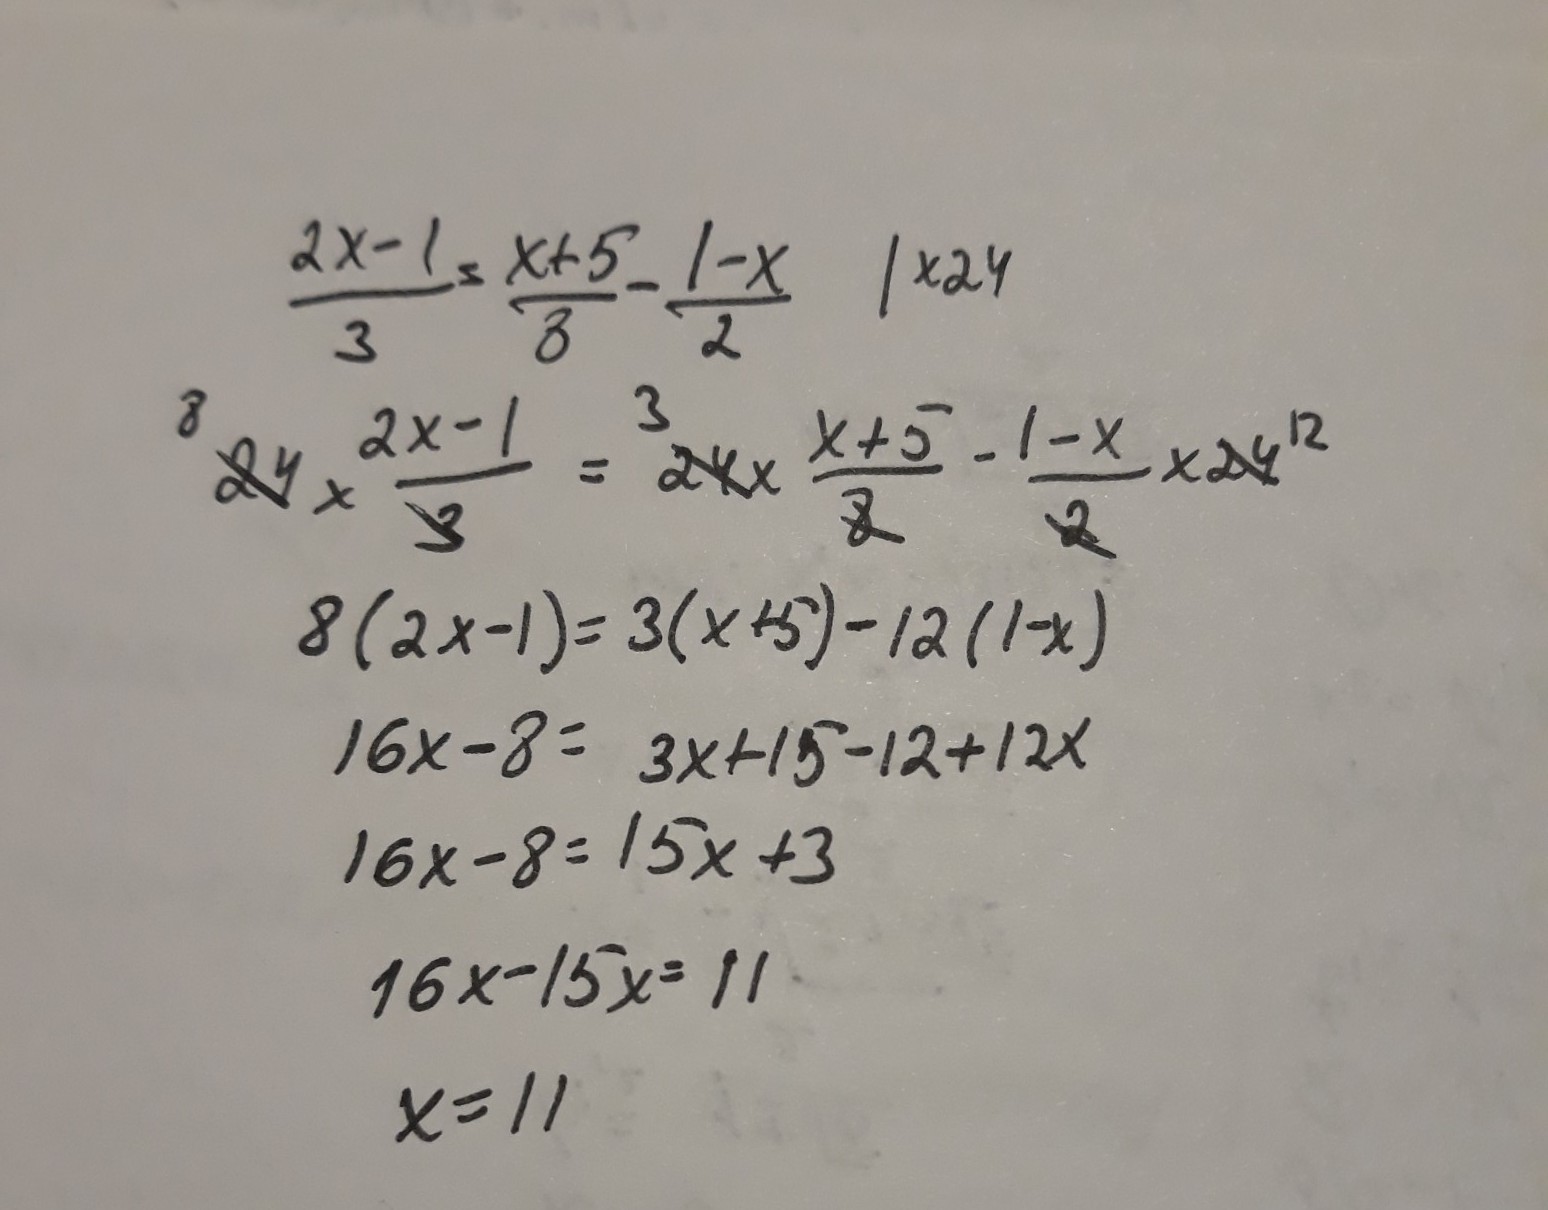 (2x-1)/3 = (x+5)/8 - (1-x)/2 | x24
8 24 x (2x-1)/3 = 3 24 x (x+5)/8 - (1-x)/2 x 24 12
8(2x-1)=3(x+5)-12(1-x)
16x-8= 3x+15-12+12x
16x-8=15x+3
16x-15x=11
x=11